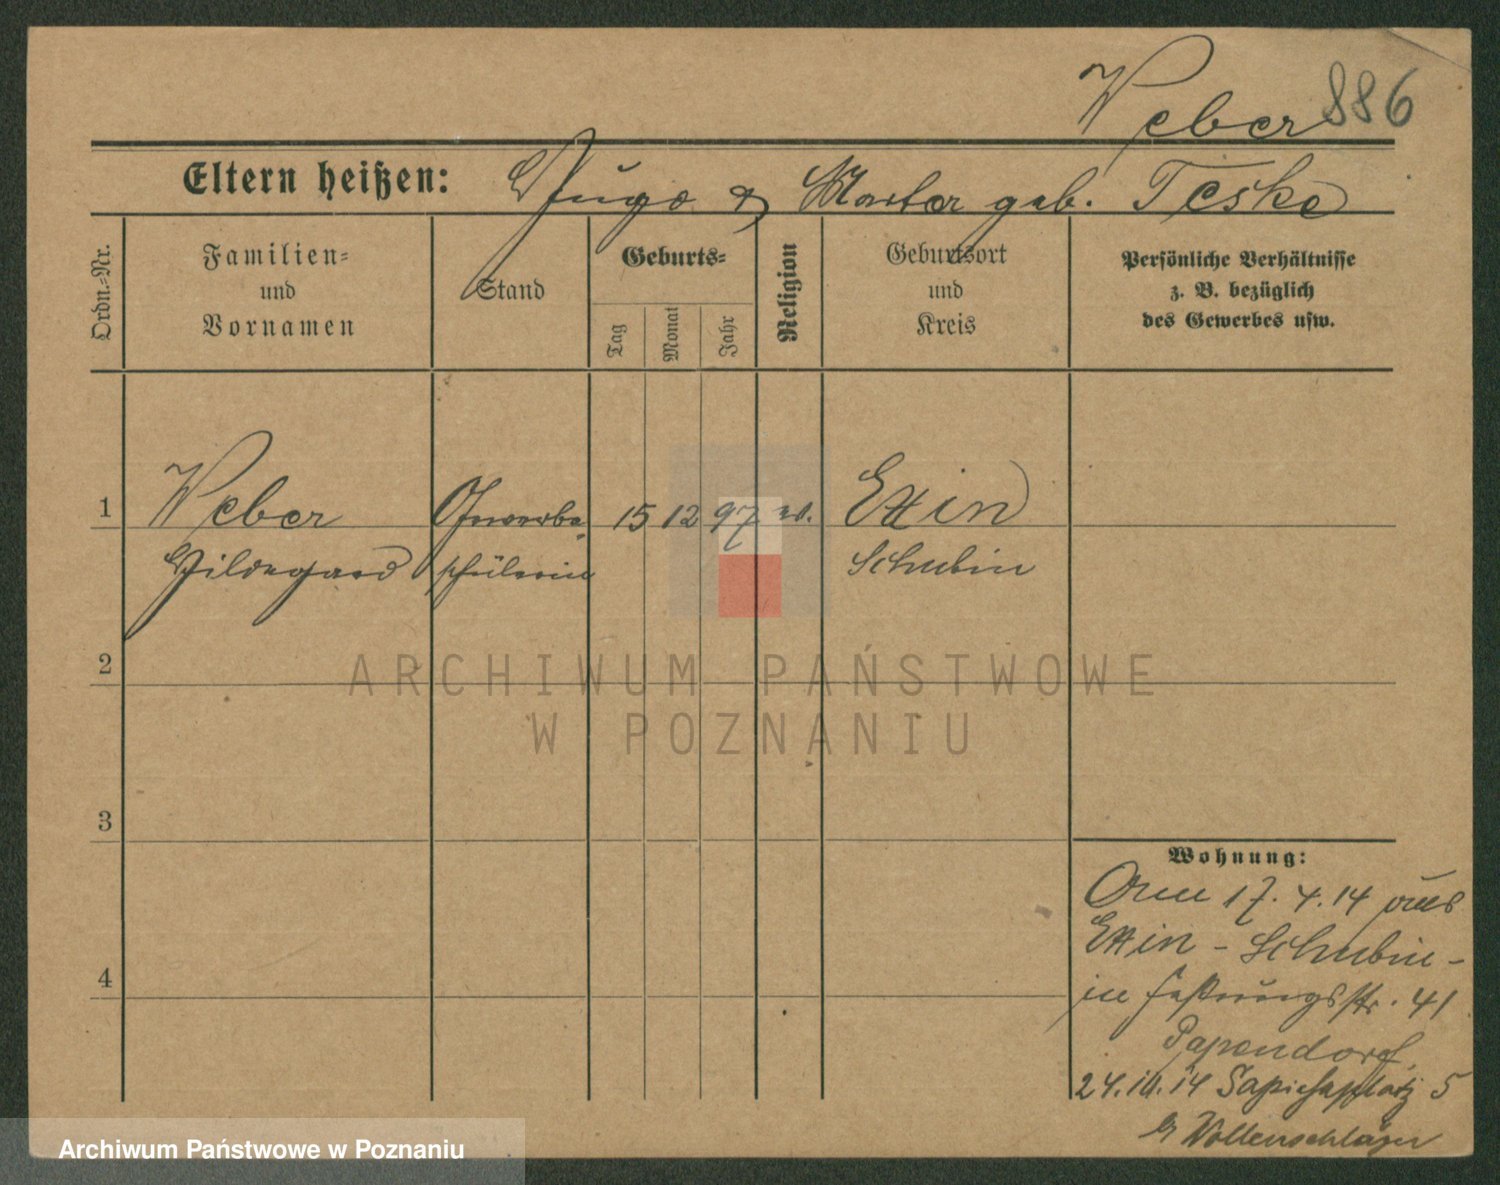 Weber 886
Eltern heißen: Hugo & Martha geb. Teske
Ordn.-Nr.
Familien- und Vornamen
Stand
Geburts-
Tag
Monat
Jahr
Religion
Geburtsort und Kreis
Persönliche Verhältnisse
z. B. bezüglich
des Gewerbes usw.
1 Weber Gewerbe- 15 12 97 ev. Exin
Hildegard schülerin Schubin
2
ARCHIWUM PAŃSTWOWE
W POZNANIU
3
Wohnung:
17.4.14 aus
Exin - Schubin -
in Festungsstr. 41
Papendorf
4
24.10.14 Sapiehaplatz 5
Wollenschläger
Archiwum Państwowe w Poznaniu